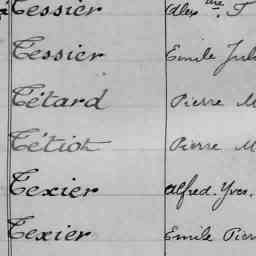 Tessier Alex.dre. T
Tessier Emile Jul
Tétard Pierre M
Tétiot Pierre M
Texier Alfred. Yves.
Texier Emile Pier